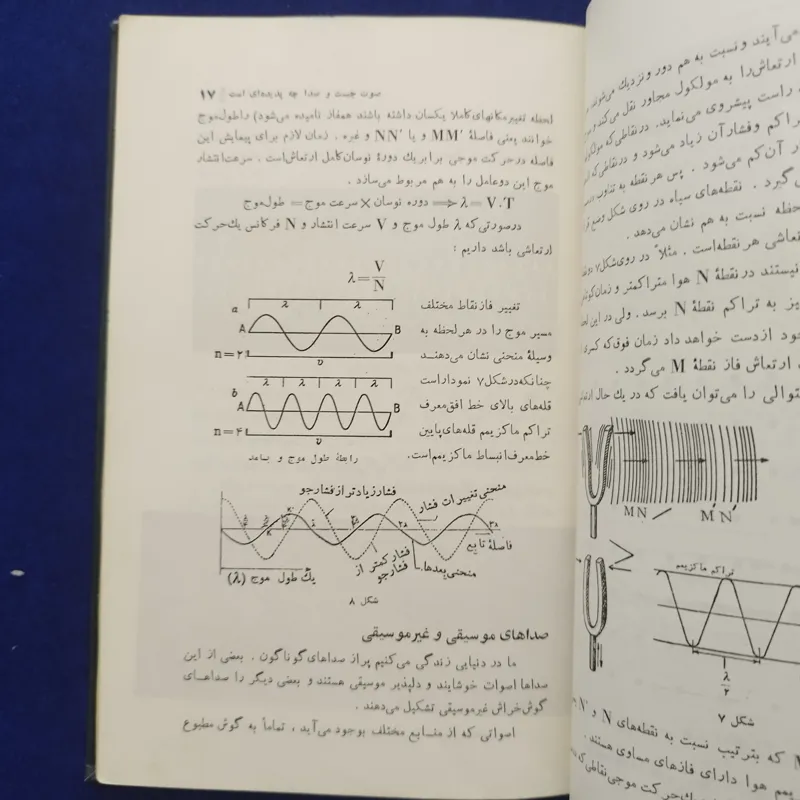 صوت چیست و صدا چه پدیده‌ای است ۱۷
لحظه تغییرمکانهای کاملا یکسان داشته باشند همفاز نامیده می‌شود) راطول‌موج
خوانند یعنی فاصلهٔ MM′ و یا NN′ و غیره . زمان لازم برای پیمایش این
فاصله درحرکت موجی برابریك دورهٔ نوسان‌کامل ارتعاش‌است . سرعت‌انتشار
موج این دوعامل را به هم مربوط می‌سازد .
λ = V.T ⟹ دوره نوسان × سرعت موج = طول‌موج
درصورتی‌که λ طول موج و V سرعت انتشار و N فرکانس یك‌حرکت
ارتعاشی باشد داریم :
λ = V/N
تغییر فاز نقاط مختلف
مسیر موج را در هرلحظه به
وسیلهٔ منحنی نشان می‌دهند
چنانکه‌درشکل۷ نموداراست
قله‌های بالای خط افق‌معرف
تراکم ماکزیمم قله‌های‌پایین
خط‌معرف‌انبساط ماکزیمم‌است.
a λ λ
A B
n = ۲ v
b λ λ λ λ
A B
n = ۴ v
رابطهٔ طول موج و بسامد
منحنی تغییرات فشار
فشارزیادتر‌ازفشارجو
λ ۲λ ۳λ
فاصلهٔ تابع
فشار کمتر از
فشارجو
منحنی‌بعدها
یك طول موج (λ)
شکل ۸
صداهای موسیقی و غیرموسیقی
ما در دنیایی زندگی می‌کنیم پراز صداهای گوناگون . بعضی از این
صداها اصوات خوشایند و دلپذیر موسیقی هستند و بعضی دیگر را صداهای
گوش‌خراش غیرموسیقی تشکیل می‌دهند .
اصواتی که از منابع مختلف بوجود می‌آید ، تماماً به گوش مطبوع
می‌آیند و نسبت به هم دور و نزدیك می‌شوند
ارتعاش‌را به مولکول مجاور نقل می‌کند و
راست پیشروی می‌نماید. درنقاطی‌که
تراکم وفشارآن زیاد می‌شود و درنقاطی‌که
آن‌کم می‌شود . پس هر نقطه به تناوب
گیرد . نقطه‌های سیاه در روی شکل وضع
لحظه نسبت به هم نشان می‌دهد .
تعاشی هر نقطه‌است . مثلاً در روی‌شکل۷
نیستند درنقطهٔ N هوا متراکمتر و زمان
یز به تراکم نقطهٔ N برسد. ولی در این
خود ازدست خواهد داد زمان فوق‌که کسری
ارتعاش فاز نقطهٔ M می‌گردد .
توالی را می‌توان یافت که در یك حال
MN M′N′
تراکم ماکزیمم
λ/۲
شکل ۷
M که بترتیب نسبت به نقطه‌های N و N′
یمم هوا دارای فازهای مساوی هستند .
حرکت موجی‌نقاطی‌که